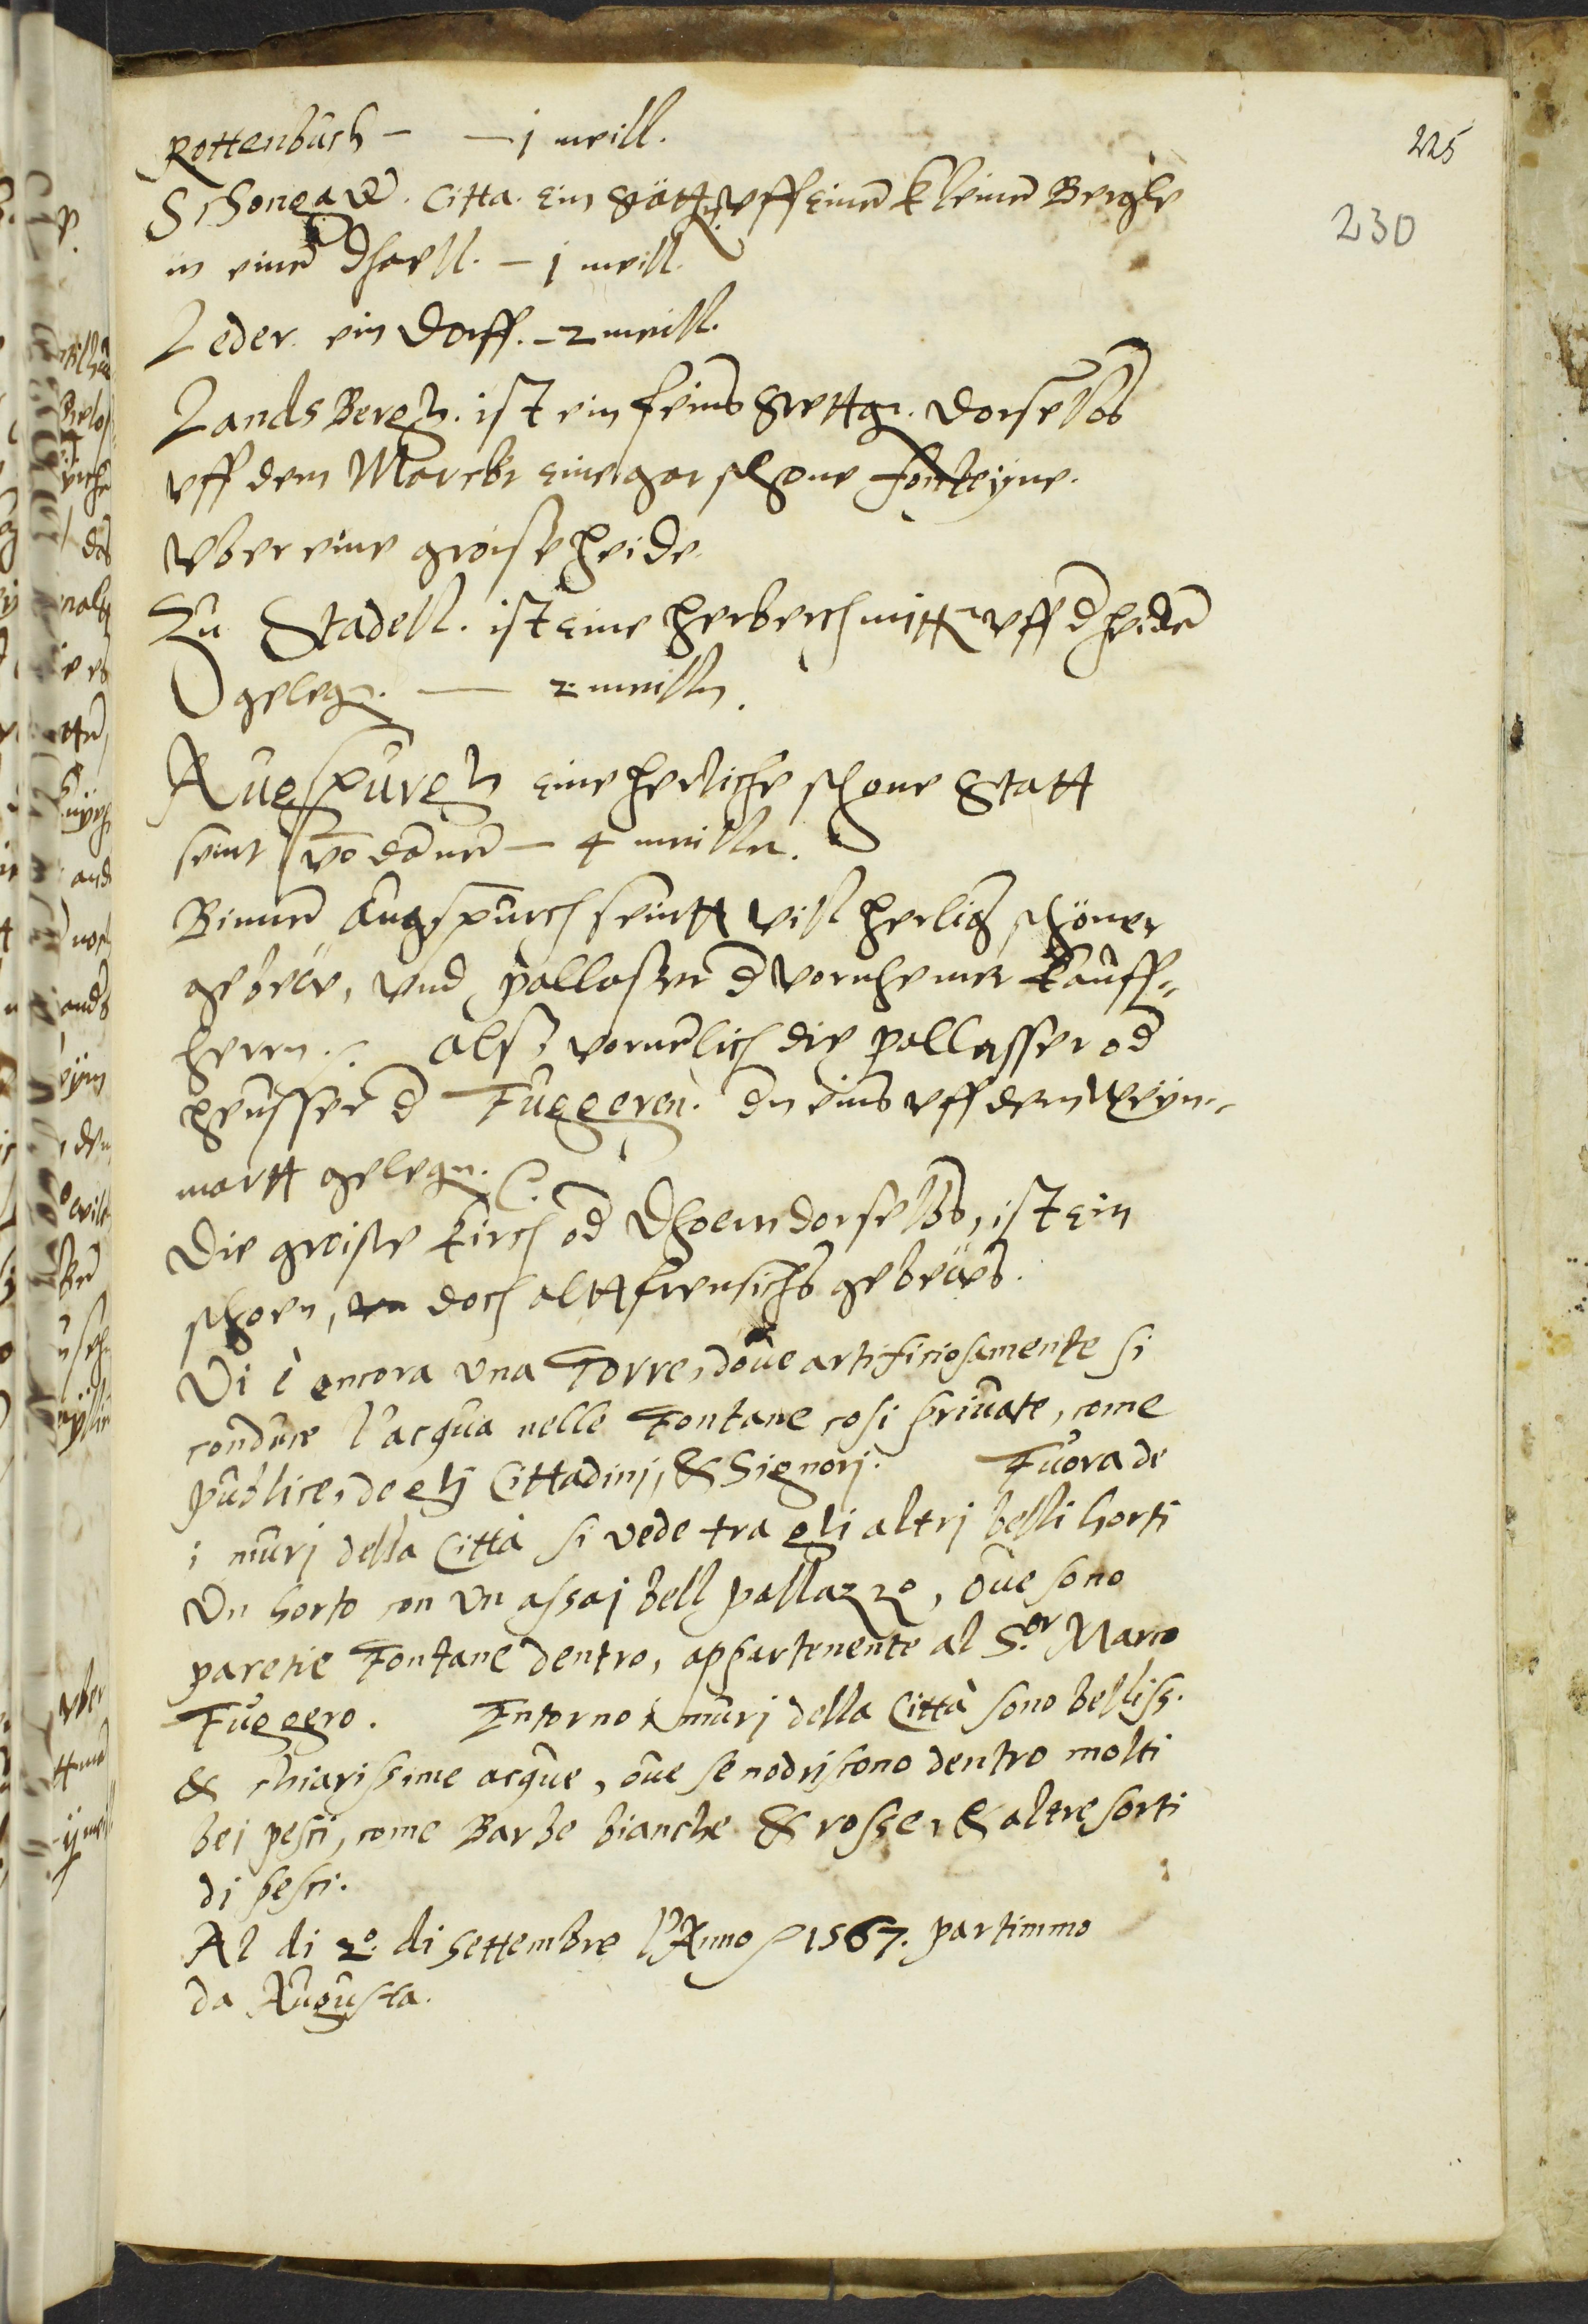 225
230
Rottenbuch – – j meill.
Schongaw. Citta. ein Stättg. uff einem kleinen Bergle
in einem dhaell. – j meill.
Leder. ein Dorff. – 2 meill.
LandsBergh. ist ein feins Stettg. Dorselbs
uff dem Marckt eine gar schone fonteyne.
uber eine groisse heide.
Zu Stadell. ist eine herberch mitt uff d heiden
gelegn. — 2 meilln.
Augspurgh eine herliche schone Statt
seint von dannen – 4 meillen.
Binnen Augspurch seintt vill herlich schöner
gebew, und pallasser d vornhemer kauff⸗
herrn. alss vornemlich die pallasser od
heusser d Fuggeren. dn eins uff dem Weyn⸗
martt gelegn.
Die groisse kirch od Dhoem dorselbs, ist ein
schoen, doch altt frensichs gebews.
Vi è ancora una Torre, dove artificiosamente si
conduce l'acqua nelle Fontane cosi private, come
publice, de glj Cittadinj, & Signorj. Fuora de
i murj della Città si vede tra gli altrj belli horti
Un horto con un assaj bell pallazzo, ove sono
parechie Fontane dentro, appartenente al S.or Marco
Fuggero. Intorno i murj della Città sono belliss.
& chiarissime acque, ove se nodriscono dentro molti
bej pesci, come Barbe bianche & rosse, & altre sorti
dj pesci.
Al di 20. di settembre l'Anno 1567. partimmo
da Augusta.